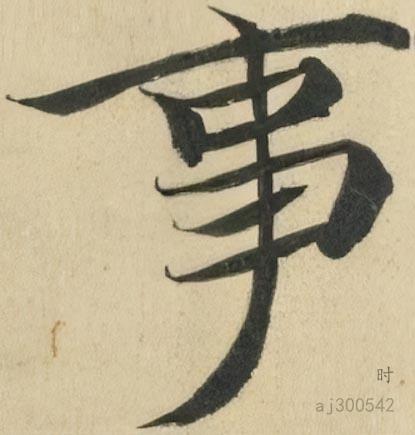 事
时
aj300542